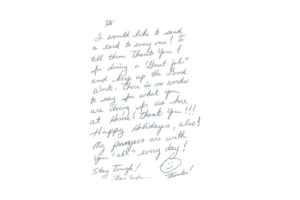 I would like to send
a card to every one! To
tell them Thank You!
for doing a "Great Job"
and keep up the Good
Work. There is no words
to say for what you
are doing for us here
at Home! Thank you!!!
Happy Holidays, also!
My prayers are with
you "all" every day!
Stay Tough!
Thanks!